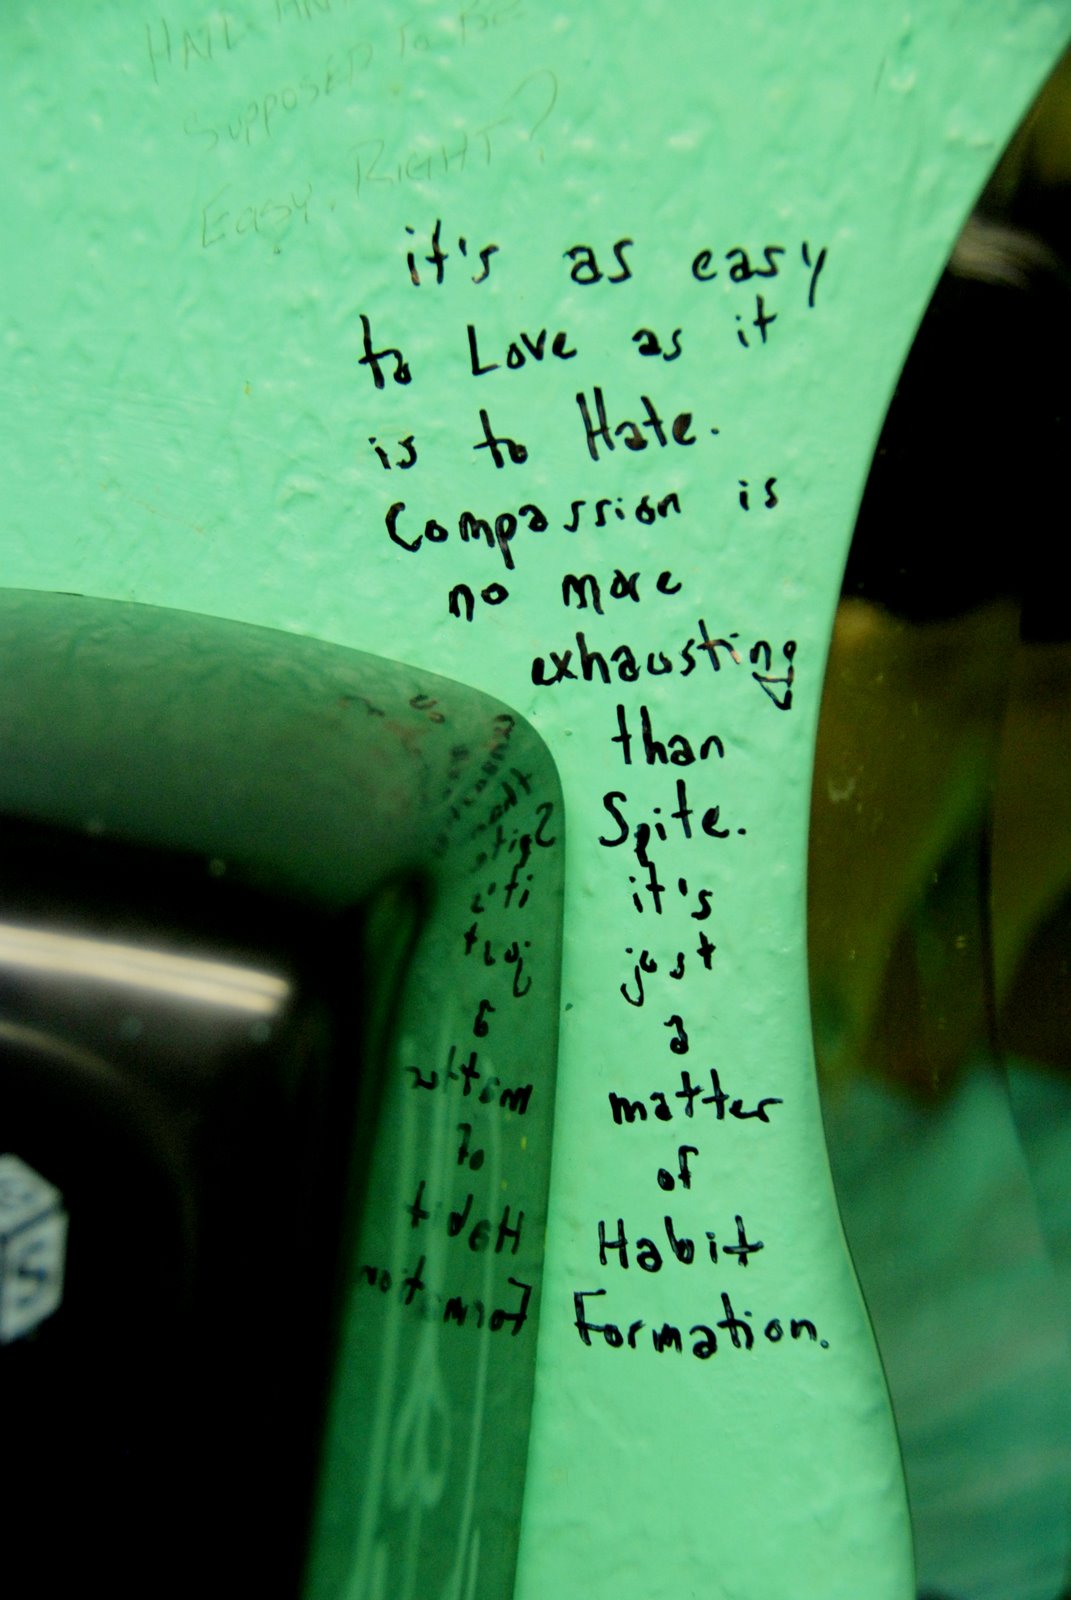 Supposed to be
Easy. Right?
it's as easy
to Love as it
is to Hate.
Compassion is
no more
exhausting
than
Spite.
it's
just
a
matter
of
Habit
Formation.